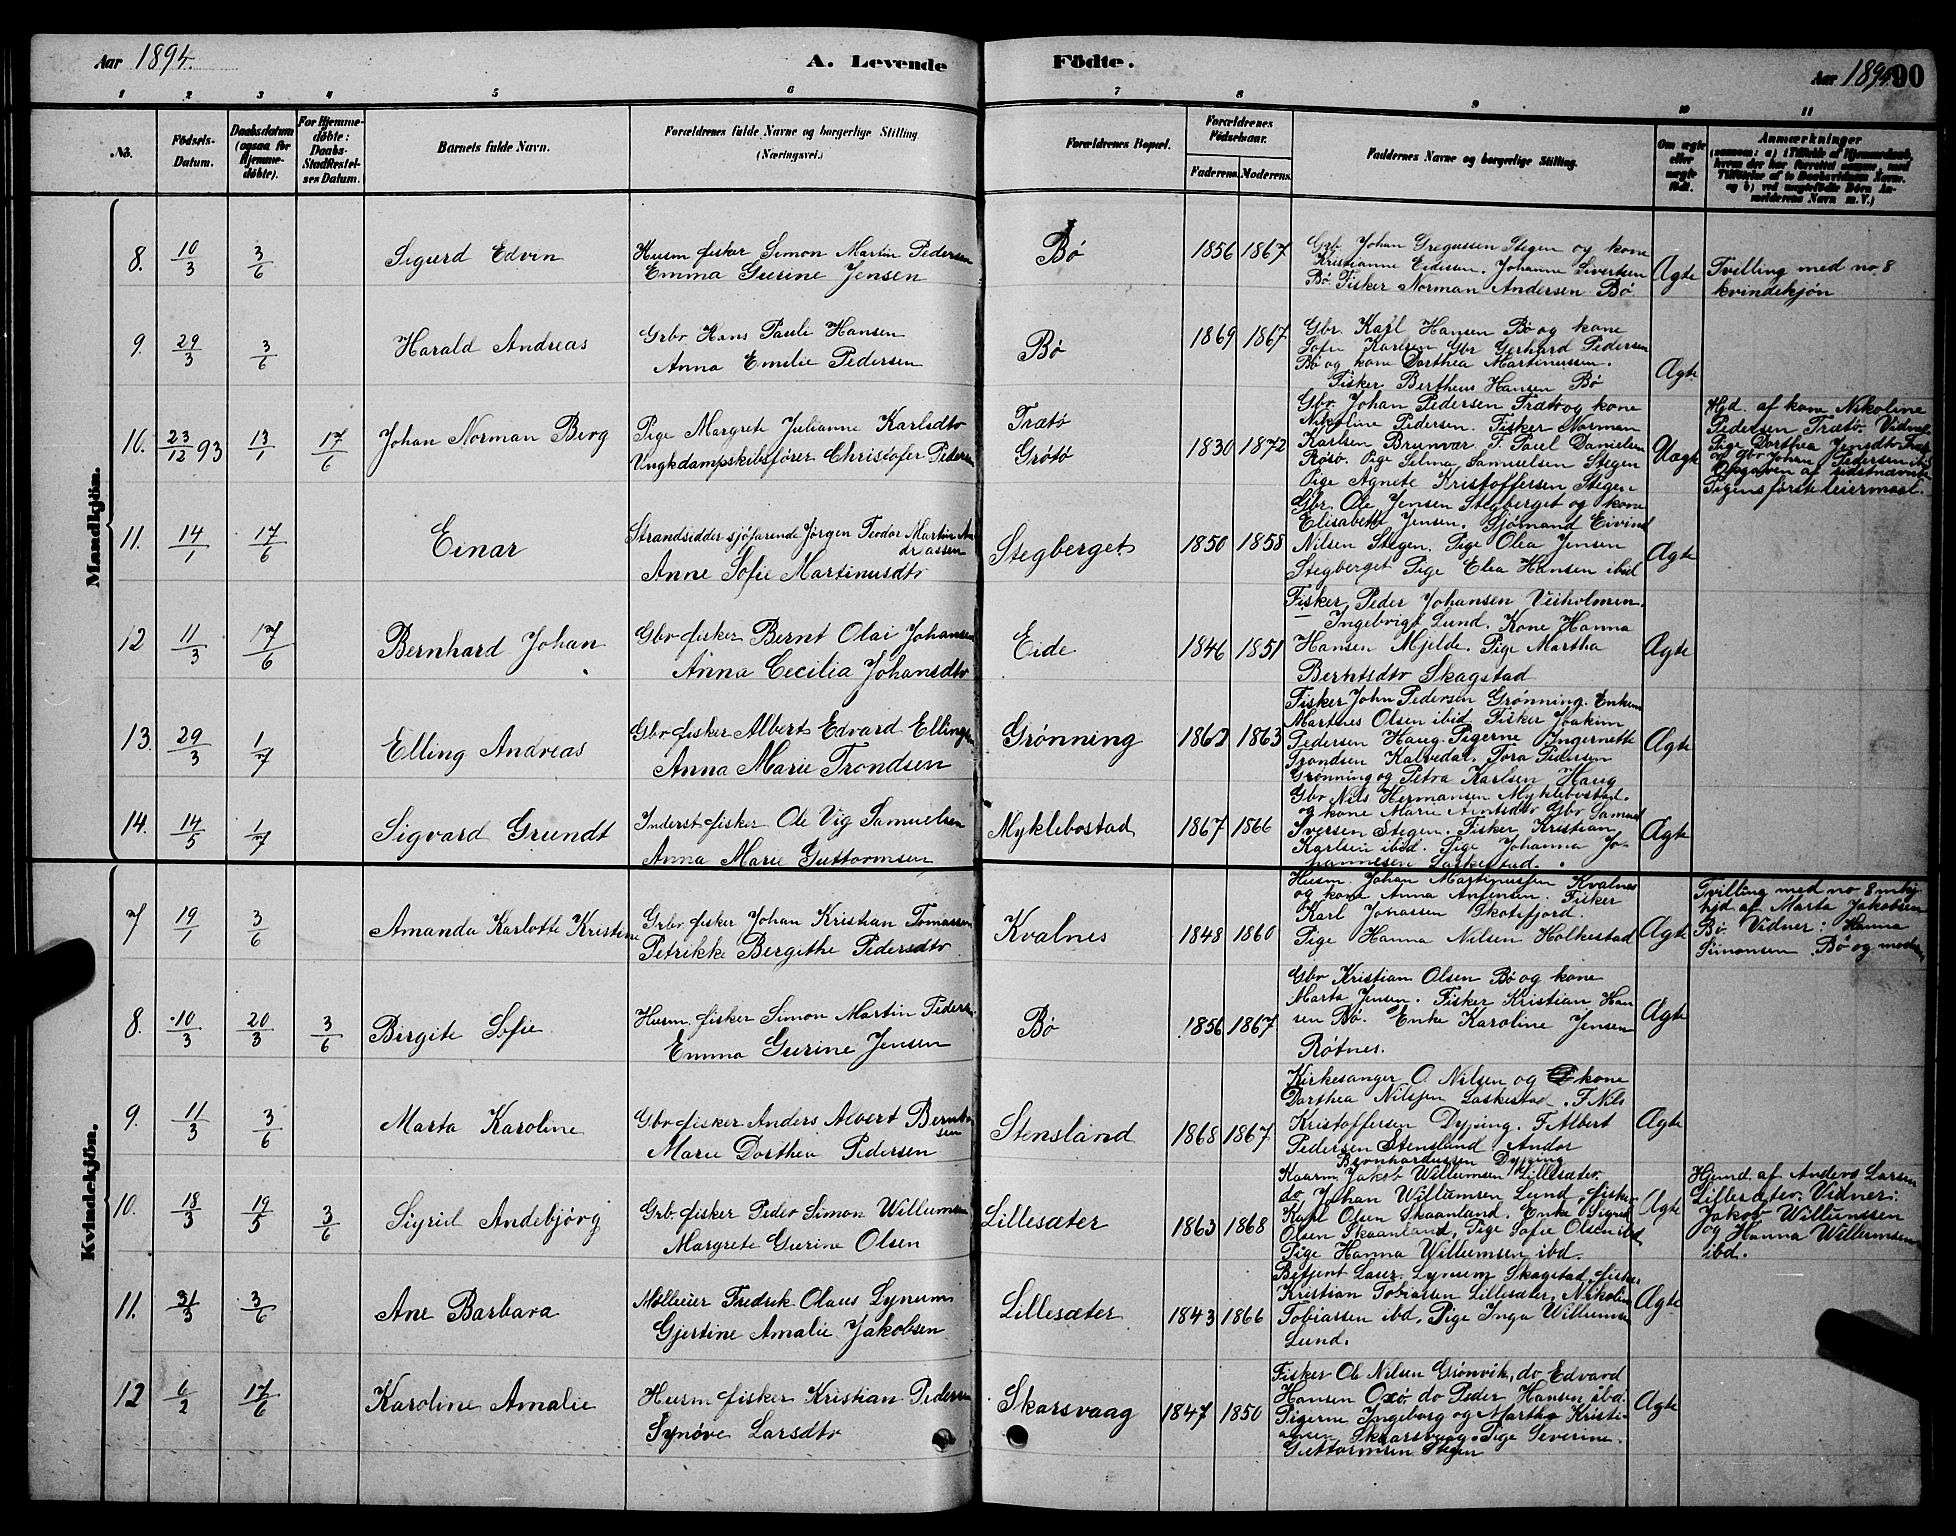 Aar 1894.
A. Levende Födte.
Aar 1894
90
1 2 3 4 5 6 7 8 9 10 11
No.
Födsels-
Datum.
Daabsdatum
(ogsaa for
Hjemme-
döbte).
For Hjemme-
döbte:
Daabs-
Stadfæstel-
ses Datum.
Barnets fulde Navn.
Forældrenes fulde Navne og borgerlige Stilling.
(Næringsvei.)
Forældrenes Bopæl.
Forældrenes
Födselsaar.
Faderens. Moderens.
Faddernes Navne og borgerlige Stilling.
Om ægte
eller
uægte
födt.
Anmærkninger
Mandkjön.
8. 10/3 3/6
Sigurd Edvin
Husm fisker Simon Martin Pedersen
Emma Gurine Jensen
Bø
1856 1867
Grb. Johan Gregussen Stegen og kone
Kristianne Eidissen. Johanne Sivertsen
Bø. Fisker Norman Andersen Bø.
Ægte
Tvilling med no. 8
kvindekjön
9. 29/3 3/6
Harald Andreas
Grbr Hans Pauli Hansen
Anna Emelie Pedersen
Bø
1869 1867
Gbr. Karl Hansen Bø og kone
Sofie Karlsen Gbr Gerhard Pedersen
Bø og kone Dorthea Martinussen.
Fisker Bertheus Hansen Bø
Ægte
10. 23/12 93 13/1 17/6
Johan Norman Berg
Pige Margrete Julianne Karlsdtr
Ungk dampskibsfører Christofer Pedersen
Trætø
Grøtø
1830 1872
Gbr. Johan Pedersen Trætø og kone
Nikoline Pedersen. Fisker Norman
Karlsen Brunvær F. Paul Danielsen
Røsø. Pige Selma Samuelsen Stegen
Pige Agnete Kristoffersen Stegen
Uægte
Hjd. af kone Nikoline
Pedersen Trætø. Vidner
Pige Dorthea Jensdtr Træt
og Gbr Johan Pedersen ibd
Opgaven af sidstnævnte
Pigens første leiermaal.
11. 14/1 17/6
Einar
Strandsidder sjöfarende Jørgen Teodor Martin An
drassen
Anne Sofie Martinusdtr
Stegberget
1850 1858
Gbr. Ole Jensen Stegberget og kone
Elisabeth Jensen. Sjömand Eivind
Nilsen Stegen. Pige Olea Jensen
Stegberget Pige Elea Hansen ibid
Ægte
12 11/3 17/6
Bernhard Johan
Gbr fisker Bernt Olai Johansen
Anna Cecilia Johansdtr
Eide
1846 1851
Fisker Peder Johansen Veiholmen.
— Ingebrigt Lund. Kone Hanna
Hansen Mjelde. Pige Martha
Berntsdtr Skagstad
Ægte
13. 29/3 1/7
Elling Andreas
Gbr fisker Albert Edvard Ellingsen
Anna Marie Trondsen
Grønning
1862 1863
Fisker John Pedersen Grønning. Enkem
Martnes Olsen ibid Fisker Joakim
Pedersen Haug. Pigerne Ingernette
Trondsen Kalvedal. Tora Pedersen
Grønning og Petra Karlsen Haug
Ægte
14. 14/5 1/7
Sigvard Grundt
Inderst fisker Ole Vig Samuelsen
Anna Marie Guttormsen
Myklebostad
1867 1866
Gbr Nils Hermansen Myklebostad.
og kone Marie Arntsdtr Gbr Samuel
Iversen Stegen. Fisker Kristian
Karlsen ibid. Pige Johanna Jo-
hannesen Laskestad.
Ægte
Kvindekjön.
7 19/1 3/6
Amanda Karlotte Kristine
Grbr fisker Johan Kristian Tomassen
Petrikke Bergithe Pedersdtr
Kvalnes
1848 1860
Husm Johan Martinussen Kvalnes
og kone Anna Antensen. Fisker
Karl Jonassen Skotsfjord.
Pige Hanna Nilsen Holkestad
Ægte
Tvilling med no 8 mkj.
hjd. af Marta Jakobsen
Bø. Vidner: Hanna
Simonsen Bø og moderen
8. 10/3 20/3 3/6
Birgite Sofie
Husm. fisker Simon Martin Pedersen
Emma Gurine Jensen
Bø
1856 1867
Gbr Kristian Olsen Bø og kone
Marta Jensen. Fisker Kristian Han
sen Bø. Enke Karoline Jensen
Røtnes.
Ægte
9. 11/3 3/6
Marta Karoline
Gbr fisker Anders Albert Berntsen
sen
Marie Dorthea Pedersen
Stensland
1868 1867
Kirkesanger O Nilsen og kone
Dorthea Nilssen Laskestad. F Nils
Kristoffersen Dyping. F Albert
Pedersen Stensland Andor
Bernhardussen Dyping
Ægte
10. 18/3 19/5 3/6
Sigrid Andebjörg
Grb. fisker Peder Simon Willumsen
Margrete Gurine Olsen
Lillesæter
1863 1868
Kaarm. Jakob Willumsen Lillesæter
do Johan Willumsen Lund, fisker
Karl Olsen Skaanland. Enke Sigrid
Olsen Skaanland, Pige Sofie Olsen ibd
Pige Hanna Willumsen ibd.
Ægte
Hjemd af Anders Larsen
Lillesæter. Vidner:
Jakob Willumsen
og Hanna Willumsen
ibd.
11. 31/3 3/6
Ane Barbara
Mølleier Fredrik Olaus Lynum
Gjertine Amalie Jakobsen
Lillesæter
1843 1866
Betjent Laur. Lynum Skagstad, fisker
Kristian Tobiassen Lillesæter, Nikoline
Tobiassen ibd, Pige Inga Willumsen
Lund.
Ægte
12 6/2 17/6
Karoline Amalie
Husm fisker Kristian Pedersen
Synöve Larsdtr
Skarsvaag
1847 1850
Fisker Ole Nilsen Grönvik, do Edvard
Hansen Oxö. do Peder Hansen ibd.
Pigerne Ingeborg og Martha Kristi-
ansen Skarsvaag. Pige Severine
Guttormsen Stegen
Ægte